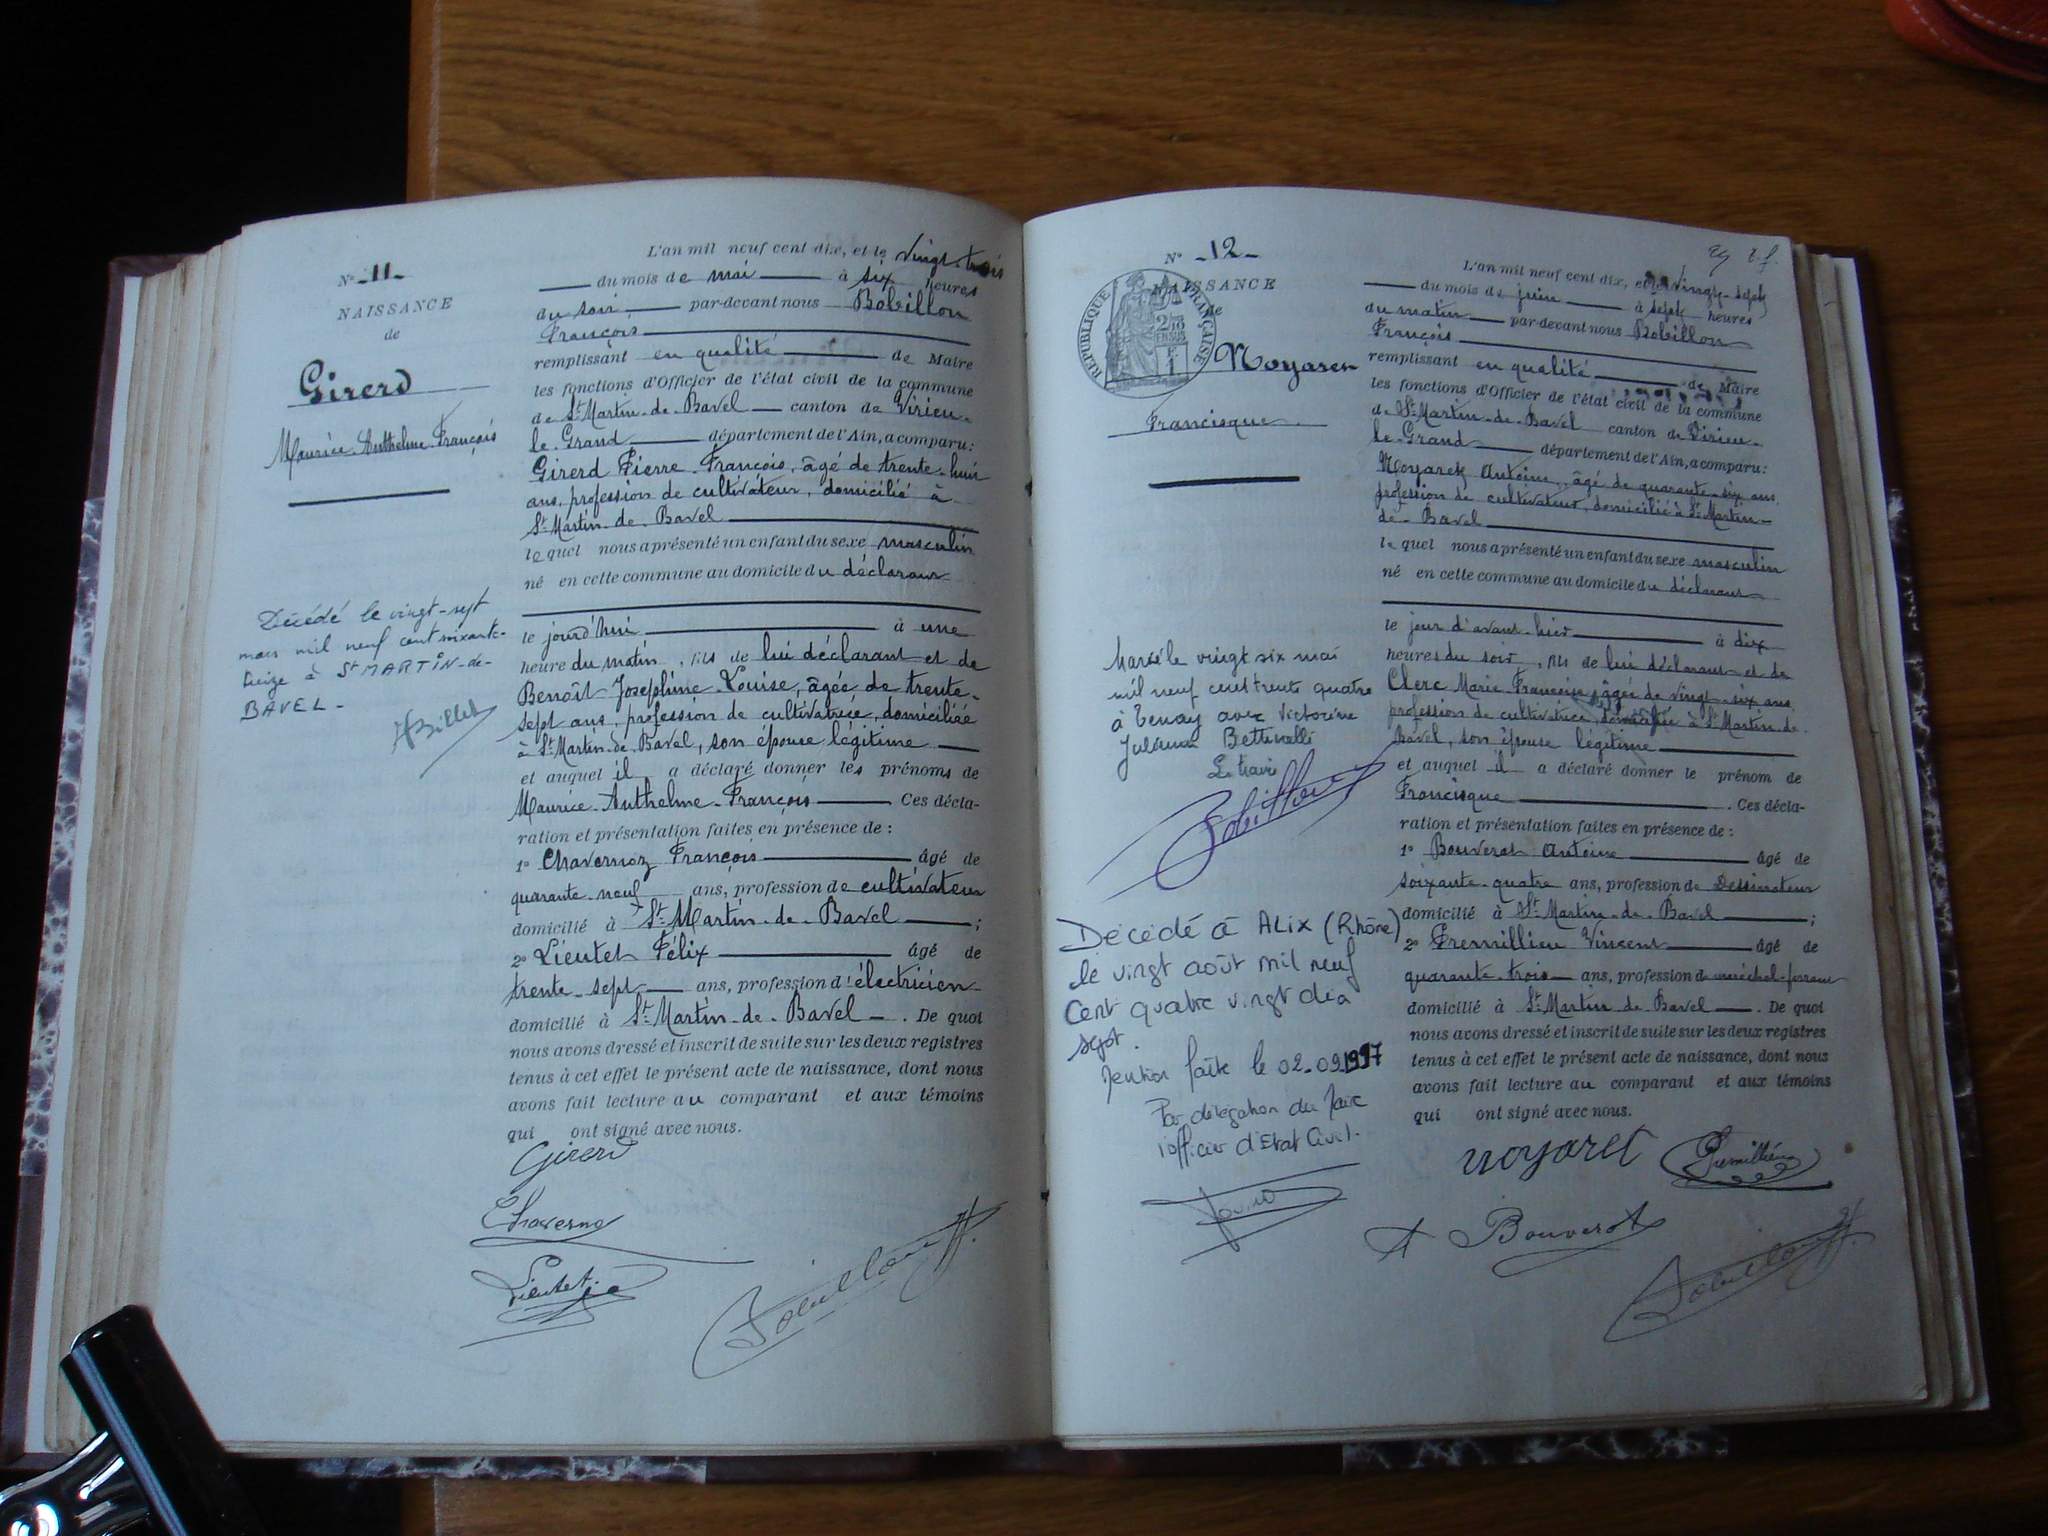 N° 11
NAISSANCE
de
Girerd
Maurice Anthelme François
Décédé le vingt-sept
mars mil neuf cent soixante-
treize à St MARTIN-de-
BAVEL -
Billet
L'an mil neuf cent dix, et le vingt-trois
du mois de mai à six heures
du soir par-devant nous Bobillon
François
remplissant en qualité de Maire
les fonctions d'Officier de l'état civil de la commune
de St Martin-de-Bavel canton de Virieu-
le-Grand département de l'Ain, a comparu:
Girerd Pierre François, âgé de trente-huit
ans, profession de cultivateur, domicilié à
St Martin-de-Bavel
lequel nous a présenté un enfant du sexe masculin
né en cette commune au domicile du déclarant
le jourd'hui à une
heure du matin, fils de lui déclarant et de
Benoît Joséphine Louise, âgée de trente-
sept ans, profession de cultivatrice, domiciliée
à St Martin-de-Bavel, son épouse légitime
et auquel il a déclaré donner les prénoms de
Maurice Anthelme François Ces décla-
ration et présentation faites en présence de :
1° Chavernoz François âgé de
quarante-neuf ans, profession de cultivateur
domicilié à St Martin-de-Bavel ;
2° Lieutet Félix âgé de
trente-sept ans, profession d'électricien
domicilié à St Martin-de-Bavel . De quoi
nous avons dressé et inscrit de suite sur les deux registres
tenus à cet effet le présent acte de naissance, dont nous
avons fait lecture au comparant et aux témoins
qui ont signé avec nous.
Girerd
Chaverno
Lieutet
Bobillon f.
N° 12
NAISSANCE
de
RÉPUBLIQUE FRANÇAISE
2/10 EN SUS
F. 1
Noyaret
Francisque
Marié le vingt six mai
mil neuf cent trente quatre
à Tenay avec Victorine
Julienne
Le Maire
Bobillon
Décédé à ALIX (Rhône)
le vingt août mil neuf
Cent quatre vingt dix
sept.
Mention faite le 02.09.1997
Par délégation du Maire
l'officier d'Etat Civil.
L'an mil neuf cent dix, et le vingt-sept
du mois de juin à sept heures
du matin par-devant nous Bobillon
François
remplissant en qualité de Maire
les fonctions d'Officier de l'état civil de la commune
de St Martin-de-Bavel canton de Virieu-
le-Grand département de l'Ain, a comparu:
Noyaret Antoine, âgé de quarante-six ans,
profession de cultivateur, domicilié à St Martin-
de-Bavel
lequel nous a présenté un enfant du sexe masculin
né en cette commune au domicile du déclarant
le jour d'avant-hier à dix
heures du soir, fils de lui déclarant et de
Clerc Marie Françoise, âgée de vingt-six ans,
profession de cultivatrice, domiciliée à St Martin-de-
Bavel, son épouse légitime
et auquel il a déclaré donner le prénom de
Francisque . Ces décla-
ration et présentation faites en présence de :
1° Bouverot Antoine âgé de
soixante-quatre ans, profession de Dessinateur
domicilié à St Martin-de-Bavel ;
2° Premillieu Vincent âgé de
quarante-trois ans, profession de maréchal-ferrant
domicilié à St Martin-de-Bavel . De quoi
nous avons dressé et inscrit de suite sur les deux registres
tenus à cet effet le présent acte de naissance, dont nous
avons fait lecture au comparant et aux témoins
qui ont signé avec nous.
Noyaret Premillieu
A Bouverot
Bobillon f.